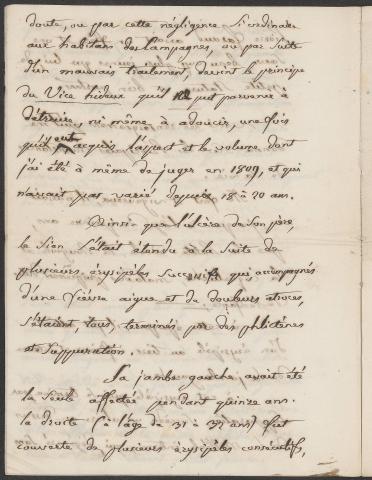 doute, ou par cette négligence si ordinaire
aux habitans des Campagnes, ou par suite
d'un mauvais traitement, devint le principe
du Vice hideux qu'il ne put parvenir à
détruire, ni même à adoucir, une fois
qu'il eut acquis l'aspect et le volume dont
j'ai été à même de juger en 1809, et qui
n'avait pas varié depuis 18 à 20 ans.
Ainsi que l'ulcère de son père,
le sien s'était étendu à la suite de
plusieurs érysipèles successifs, qui accompagnés
d'une fièvre aigue et de douleurs atroces,
s'étaient tous terminés par des phlictènes
et suppuration.
Sa jambe gauche avait été
la seule affectée pendant quinze ans.
la droite (à l'âge de 31 à 32 ans) fut
couverte de plusieurs érysipèles consécutifs,